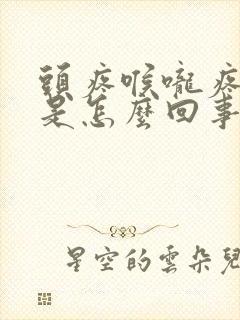 頭疼喉嚨疼
是怎麼回事
星空的雲朵兒